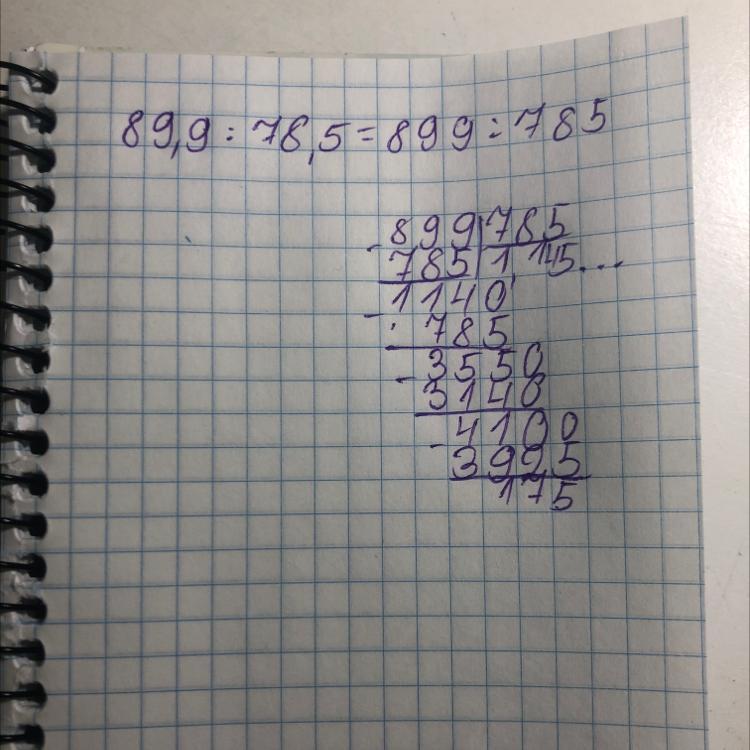 89,9 : 78,5 = 899 : 785
- 899 | 785
785 | 1,145...
- 1140
785
- 3550
3140
- 4100
3995
175